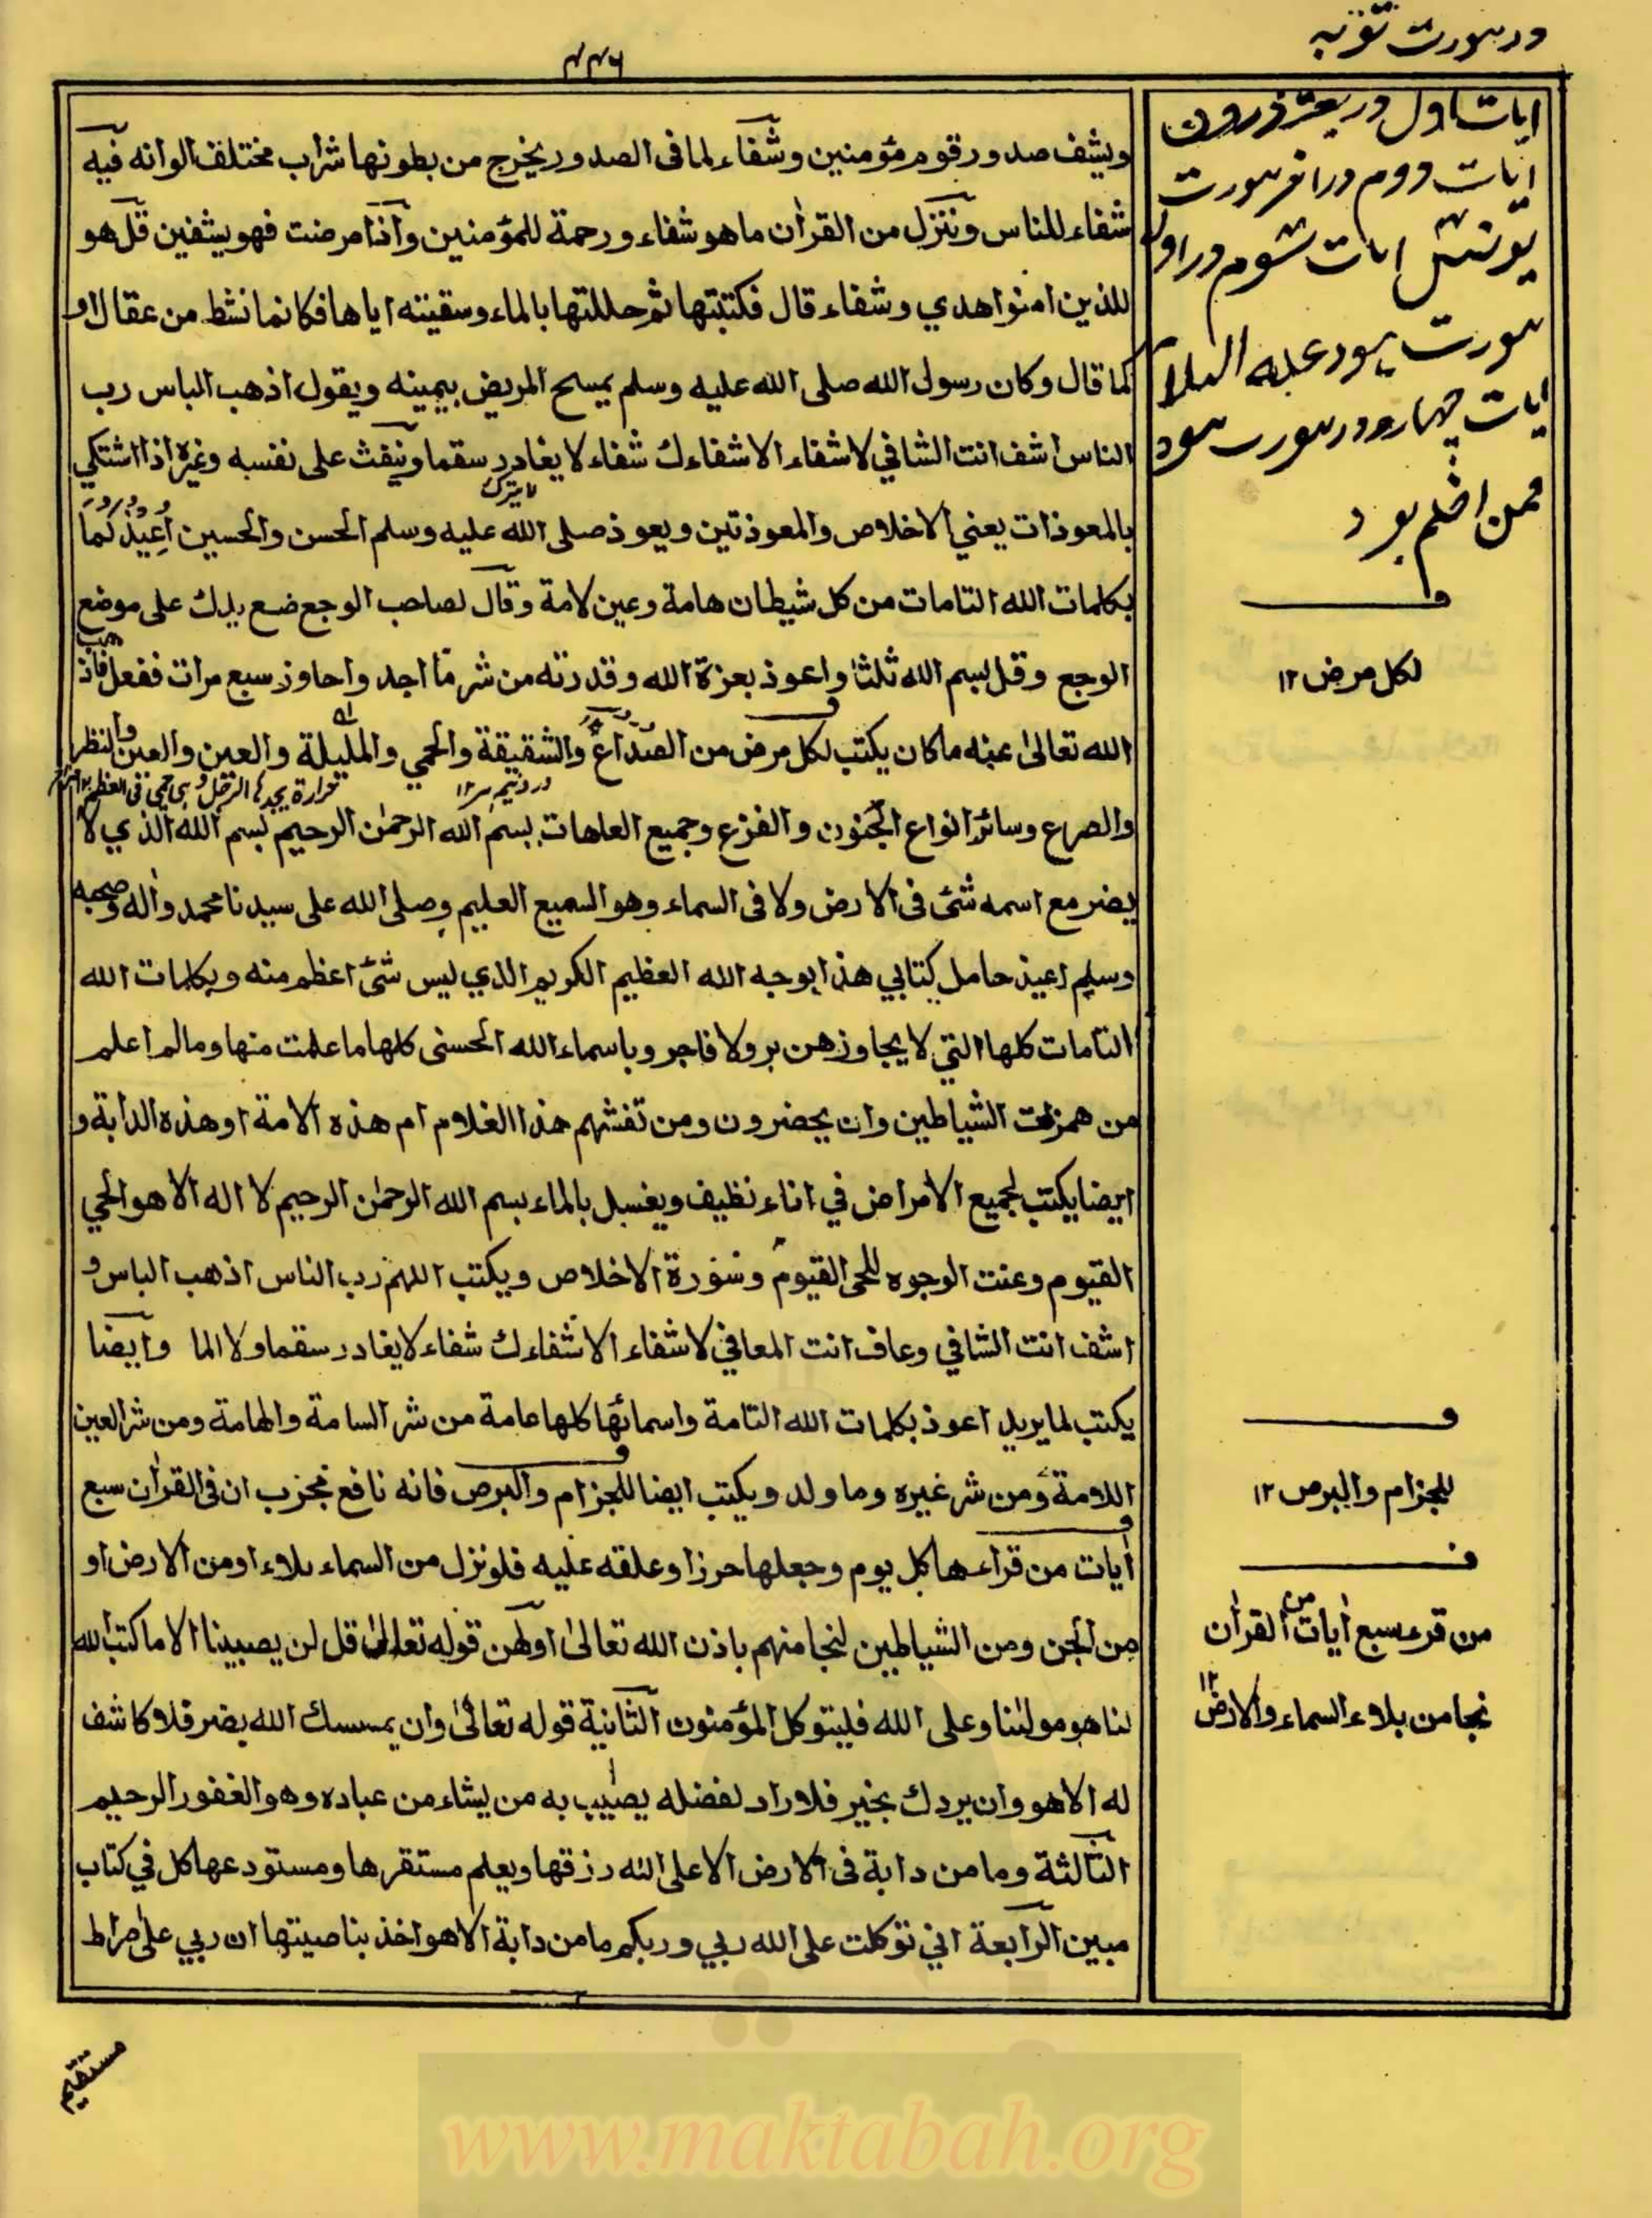 در سورت توبه
۴۴۶
ويشف صدور قوم مؤمنين وشفاء لما فى الصدور يخرج من بطونها شراب مختلف الوانه فيه
شفاء للناس وننزل من القرآن ما هو شفاء ورحمة للمؤمنين واذا مرضت فهو يشفين قل هو
للذين امنوا هدي وشفاء قال فكتبتها ثم حللتها بالماء وسقيته اياها فكانما نشط من عقال او
كما قال وكان رسول الله صلى الله عليه وسلم يمسح المريض بيمينه ويقول اذهب الباس رب
الناس اشف انت الشافي لا شفاء الا شفاءك شفاء لا يغادر سقما وينفث على نفسه وغيره اذا اشتكي
لا يترك
بالمعوذات يعني الاخلاص والمعوذتين ويعوذ صلى الله عليه وسلم الحسن والحسين اُعِيذُكُما
بكلمات الله التامات من كل شيطان هامة وعين لامة وقال لصاحب الوجع ضع يدك على موضع
الوجع وقل بسم الله ثلثا واعوذ بعزة الله وقدرته من شر ما اجد واحاوذ سبع مرات ففعل فاذهب
الله تعالى عنه ما كان يكتب لكل مرض من الصداع والشقيقة والحمي والمليلة والعين والعين والنظر
درد نيم سر ۱۲
حرارة يجدها الرجل وهي حمي فى العظم
والصرع وسائر انواع الجنون والفزع وجميع العاهات بسم الله الرحمن الرحيم بسم الله الذي لا
يضر مع اسمه شئ فى الارض ولا فى السماء وهو السميع العليم وصلى الله على سيدنا محمد واله وصحبه
وسلم اعيذ حامل كتابي هذا بوجه الله العظيم الكريم الذي ليس شئ اعظم منه وبكلمات الله
التامات كلها التي لا يجاوزهن بر ولا فاجر وباسماء الله الحسنى كلها ما علمت منها وما لم اعلم
من همزات الشياطين وان يحضرون ومن تفثهم هذا الغلام ام هذه الامة او هذه الدابة و
ايضا يكتب لجميع الامراض في اناء نظيف ويغسل بالماء بسم الله الرحمن الرحيم لا اله الا هو الحي
القيوم وعنت الوجوه للحى القيوم وسورة الاخلاص ويكتب اللهم رب الناس اذهب الباس و
اشف انت الشافي وعاف انت المعافي لا شفاء الا شفاءك شفاء لا يغادر سقما ولا الما وايضا
يكتب لما يريد اعوذ بكلمات الله التامة واسمائها كلها عامة من شر السامة والهامة ومن شر العين
اللامة ومن شر غيره وما ولد ويكتب ايضا للجزام والبرص فانه نافع مجزب ان فى القرآن سبع
آيات من قراءها كل يوم وجعلها حرزا وعلقه عليه فلو نزل من السماء بلاء او من الارض او
من الجن ومن الشياطين لنجا منهم باذن الله تعالى اولهن قوله تعالى قل لن يصيبنا الا ما كتب الله
لنا هو مولٰنا وعلى الله فليتوكل المؤمنون الثانية قوله تعالى وان يمسسك الله بضر فلا كاشف
له الا هو وان يردك بخير فلا راد لفضله يصيب به من يشاء من عباده وهو الغفور الرحيم
الثالثة وما من دابة فى الارض الا على الله رزقها ويعلم مستقرها ومستودعها كل في كتاب
مبين الرابعة اني توكلت على الله ربي وربكم ما من دابة الا هو اخذ بناصيتها ان ربي على صراط
مستقيم
ايات اول در
ايات دووم در اخر سورت
يونس ايات سوم در اول
سورت هود عليه السلام
ايات چهارو در سورت هود
فمن اظلم بود
لكل مرض ۱۲
للجزام والبرص ۱۲
من قرء سبع آيات من القرآن
نجا من بلاء السماء والارض ۱۲
www.maktabah.org